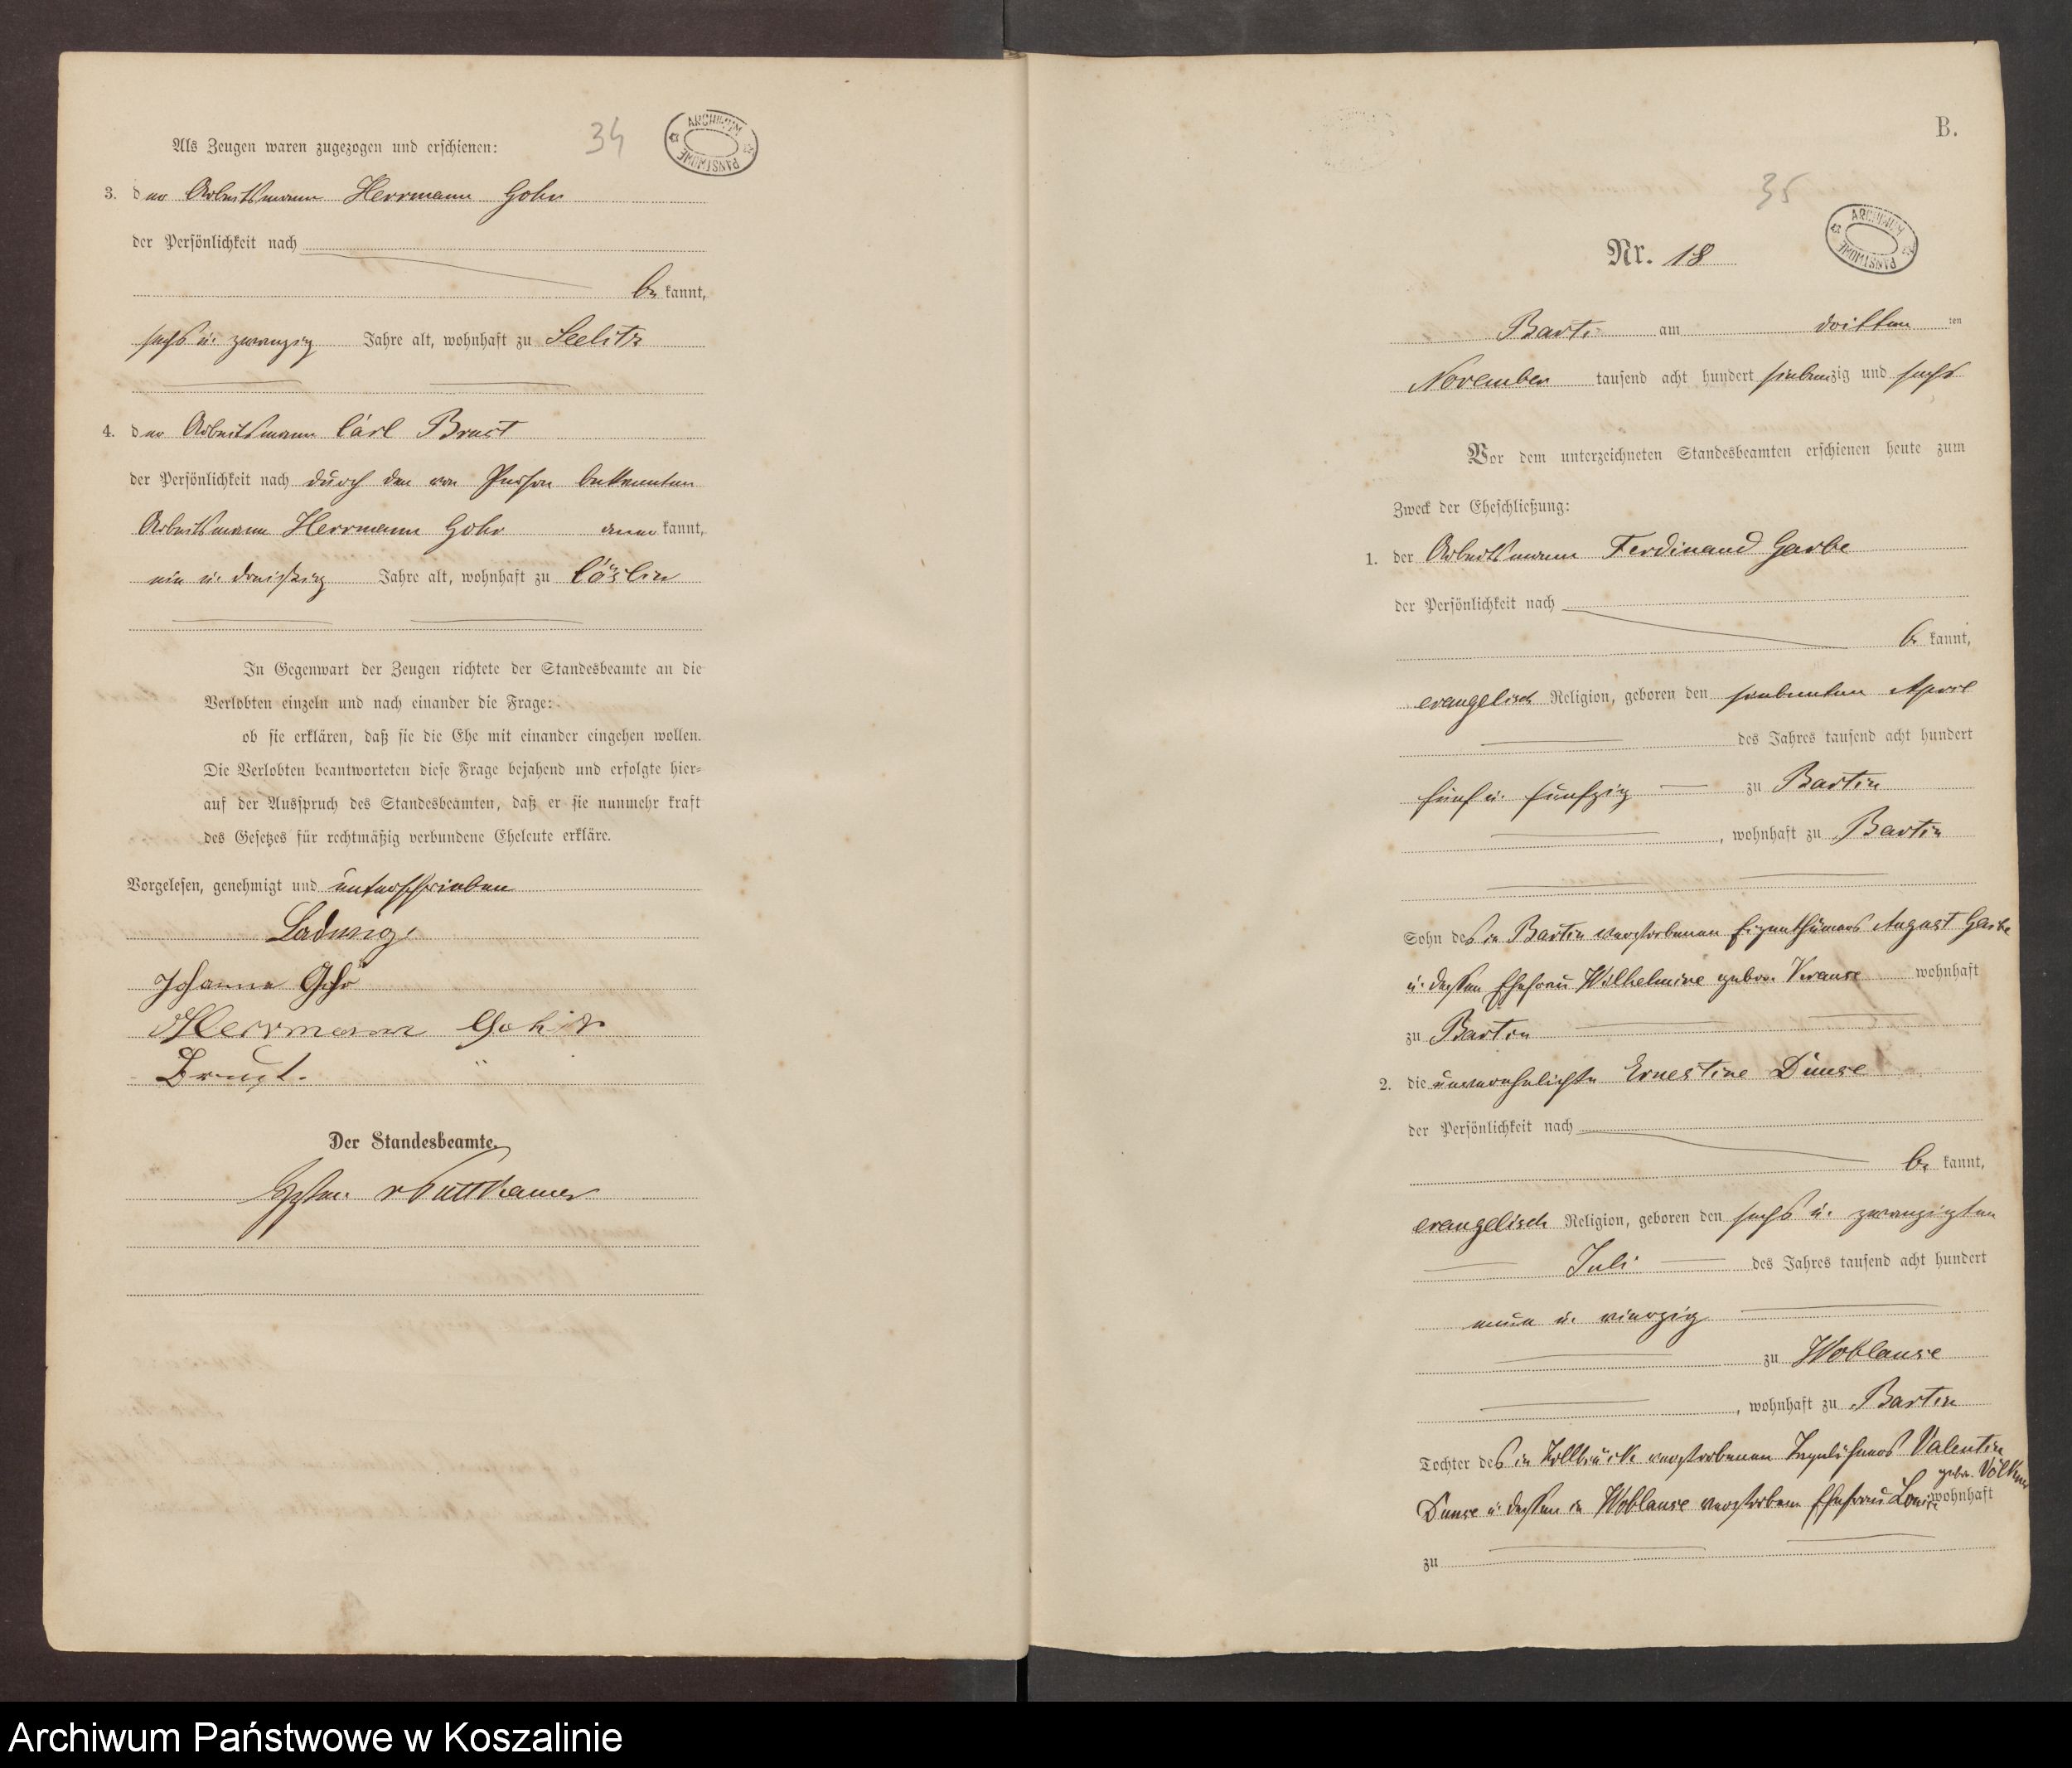 34
ARCHIWUM PAŃSTWOWE
Als Zeugen waren zugezogen und erschienen:
3. der Arbeitsmann Herrmann Gohr
der Persönlichkeit nach
be kannt,
sechs u. zwanzig Jahre alt, wohnhaft zu Seelitz
4. der Arbeitsmann Carl Brust
der Persönlichkeit nach durch den von Person bekannten
Arbeitsmann Herrmann Gohr aner kannt,
ein u. dreißig Jahre alt, wohnhaft zu Cöslin
In Gegenwart der Zeugen richtete der Standesbeamte an die
Verlobten einzeln und nach einander die Frage:
ob sie erklären, daß sie die Ehe mit einander eingehen wollen.
Die Verlobten beantworteten diese Frage bejahend und erfolgte hier-
auf der Ausspruch des Standesbeamten, daß er sie nunmehr kraft
des Gesetzes für rechtmäßig verbundene Eheleute erkläre.
Vorgelesen, genehmigt und unterschrieben
Ladwig
Johanna Gohr
Herrmann Gohr
Brust.
Der Standesbeamte.
v Puttkamer
B.
35
ARCHIWUM PAŃSTWOWE
Nr. 18
Bartin am dritten ten
November tausend acht hundert siebenzig und sechs
Vor dem unterzeichneten Standesbeamten erschienen heute zum
Zweck der Eheschließung:
1. der Arbeitsmann Ferdinand Garbe
der Persönlichkeit nach
be kannt,
evangelisch Religion, geboren den siebenten April
des Jahres tausend acht hundert
fünf u. fünfzig zu Bartin
, wohnhaft zu Bartin
Sohn des in Bartin verstorbenen Eigenthümers August Garbe
u. dessen Ehefrau Wilhelmine gebor. Krause wohnhaft
zu Bartin
2. die unverehelichte Ernestine Dunse
der Persönlichkeit nach
be kannt,
evangelisch Religion, geboren den sechs u. zwanzigsten
Juli des Jahres tausend acht hundert
neun u. vierzig
zu Woblanse
, wohnhaft zu Bartin
Tochter des in verstorbenen Valentin
gebor. Völkner
Dunse u. dessen in Woblanse verstorben Ehefrau Louise wohnhaft
zu
Archiwum Państwowe w Koszalinie